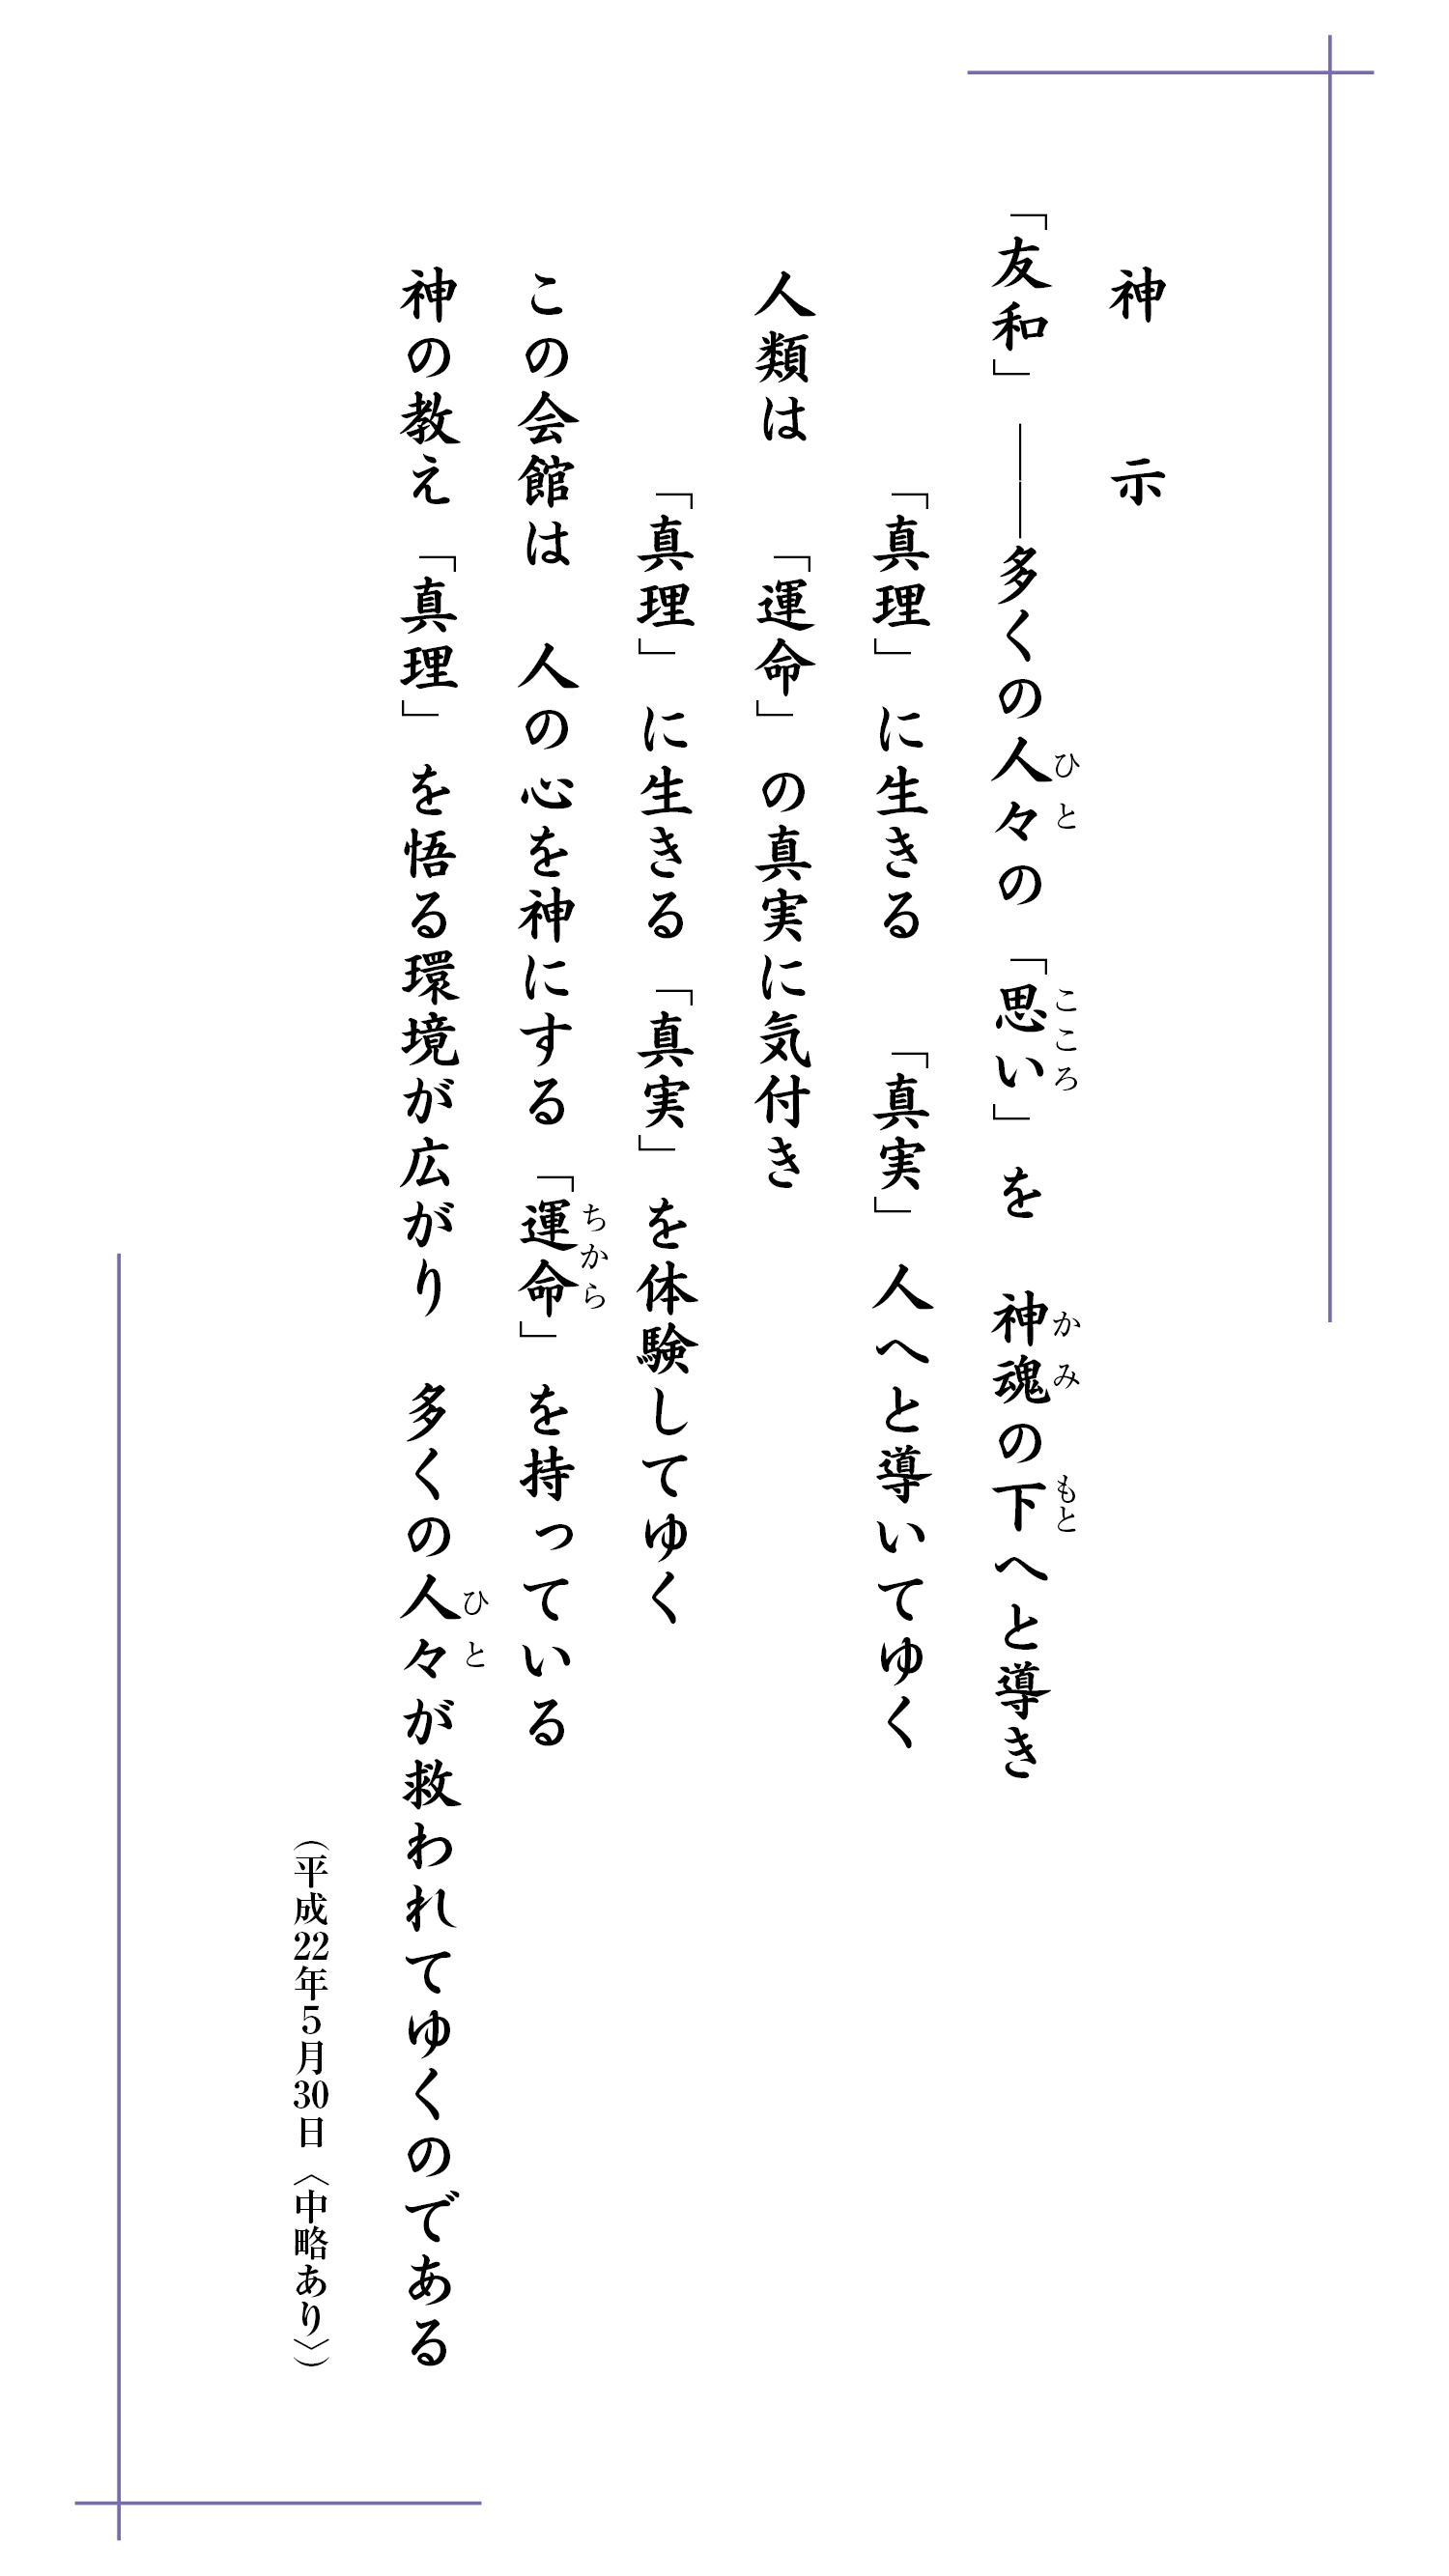 神　示
「友和」――多くの人々の「思い」を　神魂の下へと導き
「真理」に生きる　「真実」人へと導いてゆく
人類は　「運命」の真実に気付き
「真理」に生きる「真実」を体験してゆく
この会館は　人の心を神にする「運命」を持っている
神の教え「真理」を悟る環境が広がり　多くの人々が救われてゆくのである
（平成22年５月30日〈中略あり〉）
ひと
こころ
かみ
もと
ちから
ひと